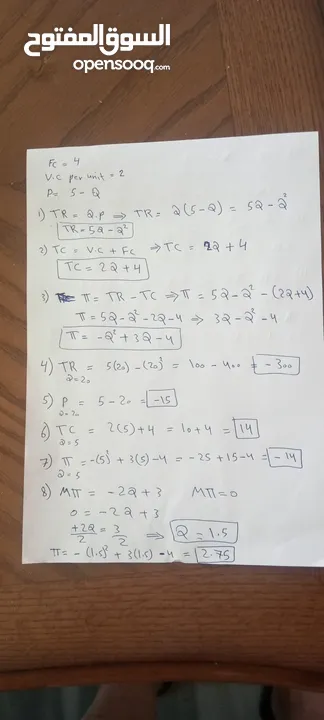 السوق المفتوح
opensooq.com
FC = 4
V.C per unit = 2
P = 5 - Q
1) TR = Q.P ⇒ TR = Q(5-Q) = 5Q - Q²
TR = 5Q - Q²
2) TC = V.C + FC ⇒ TC = 2Q + 4
TC = 2Q + 4
3) π = TR - TC ⇒ π = 5Q - Q² - (2Q+4)
π = 5Q - Q² - 2Q - 4 ⇒ 3Q - Q² - 4
π = -Q² + 3Q - 4
4) TR = 5(20) - (20)² = 100 - 400 = -300
Q=20
5) P = 5 - 20 = -15
Q=20
6) TC = 2(5) + 4 = 10 + 4 = 14
Q=5
7) π = -(5)² + 3(5) - 4 = -25 + 15 - 4 = -14
Q=5
8) Mπ = -2Q + 3 Mπ = 0
0 = -2Q + 3
+2Q/2 = 3/2 ⇒ Q = 1.5
π = -(1.5)² + 3(1.5) - 4 = 2.75